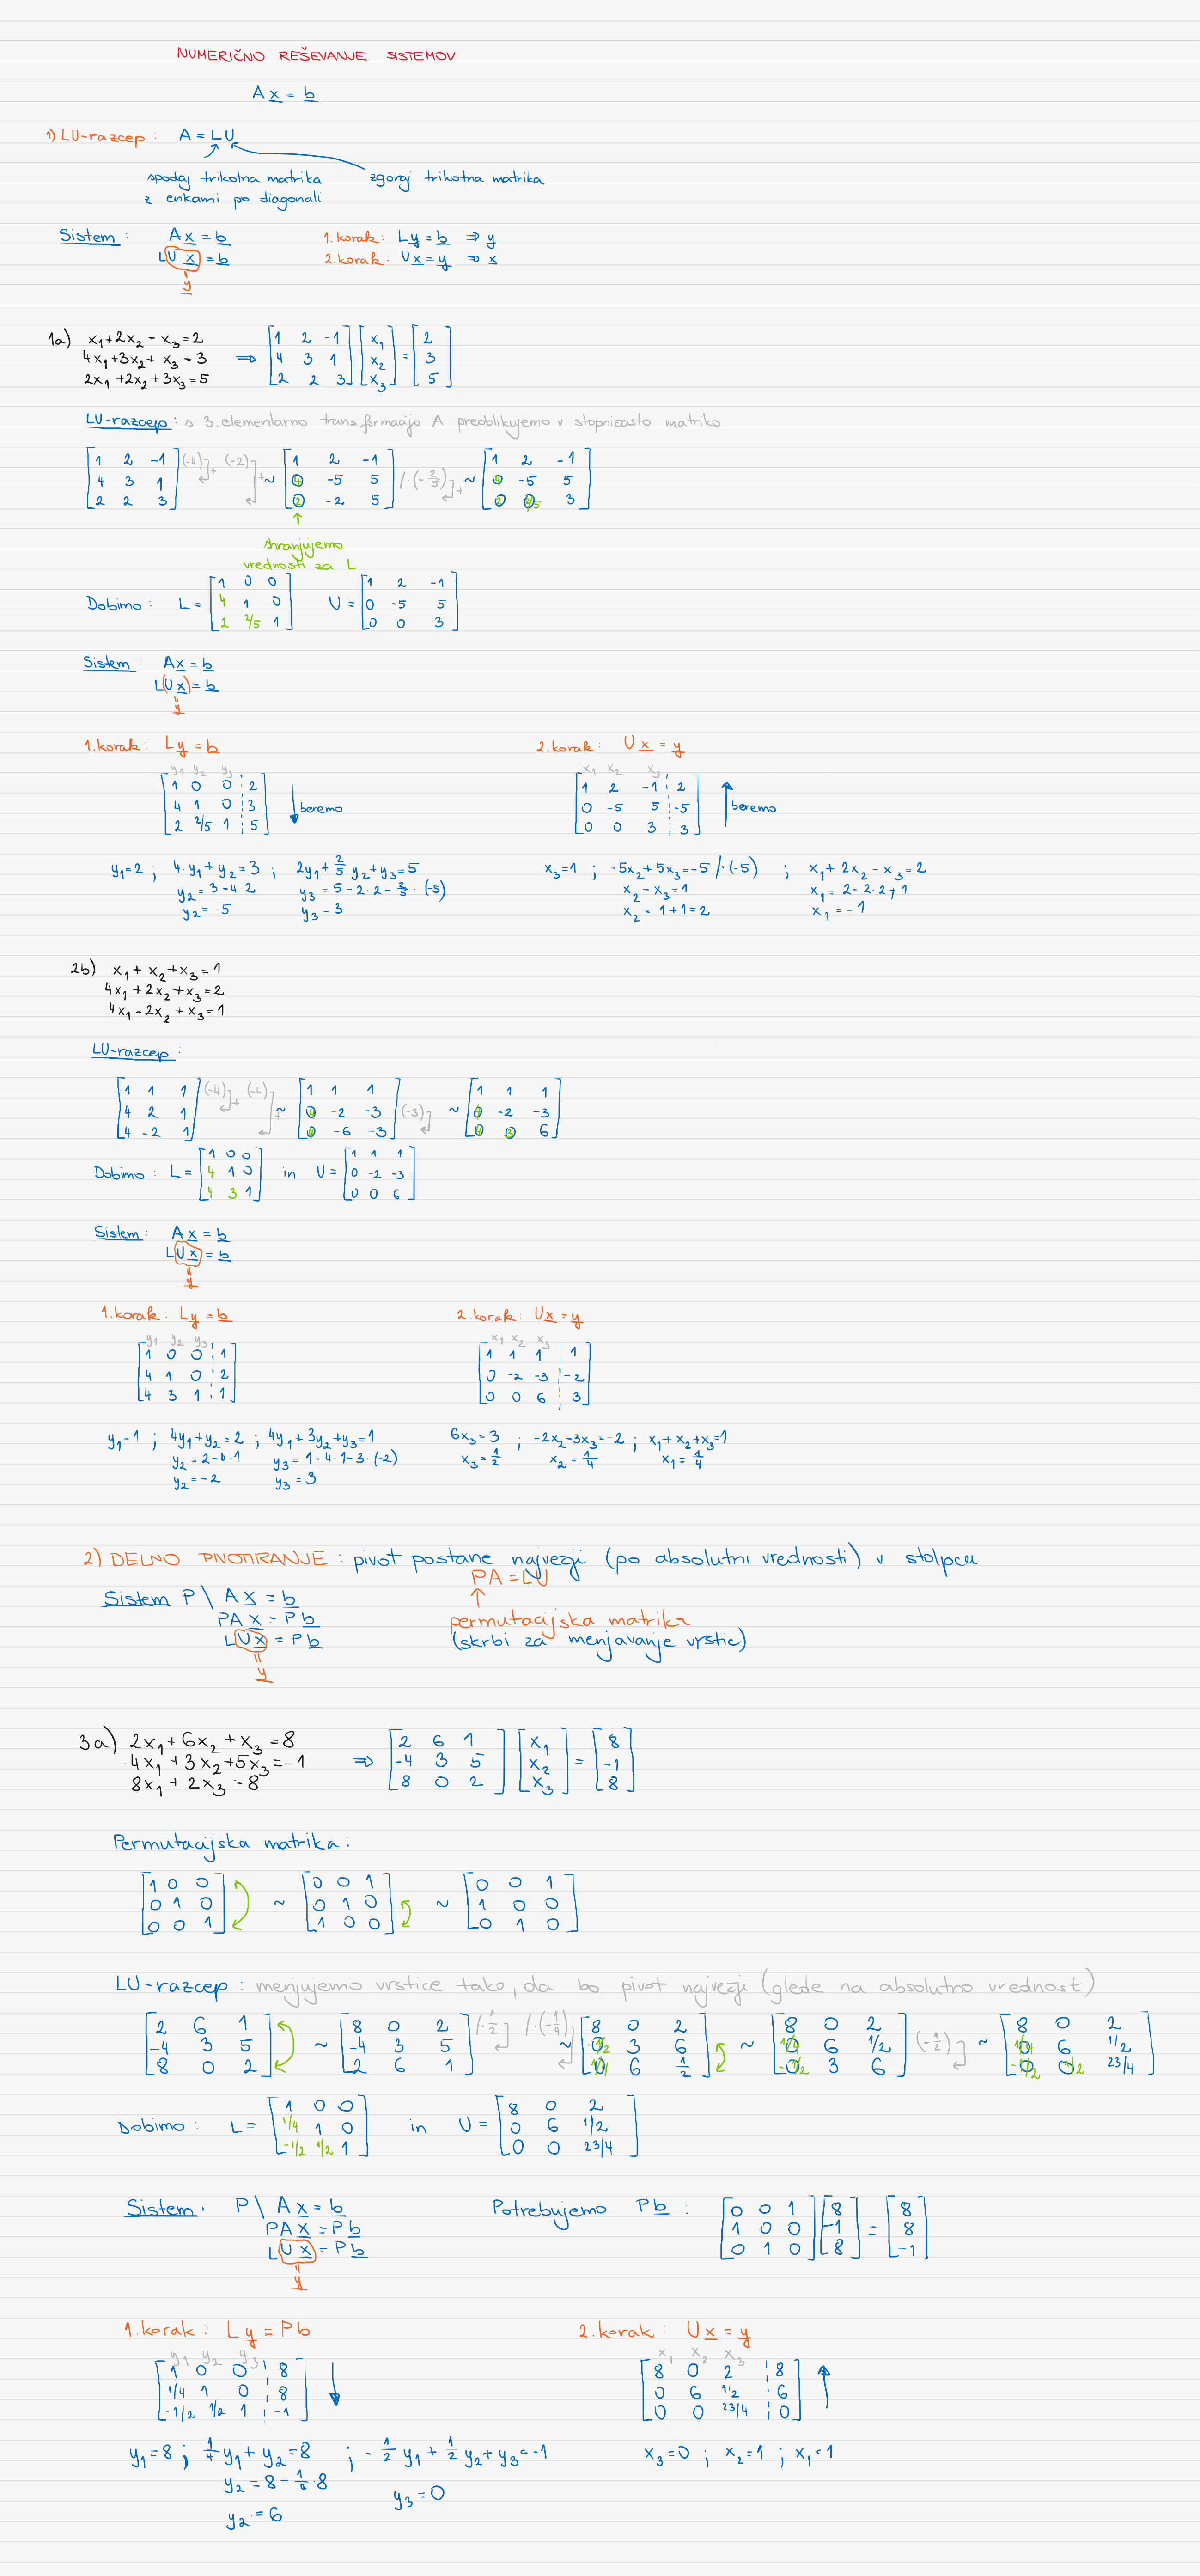 NUMERIČNO REŠEVANJE SISTEMOV
Ax = b
1) LU-razcep: A = LU
spodaj trikotna matrika z enkami po diagonali
zgoraj trikotna matrika
Sistem: Ax = b
LUx = b
y
1. korak: Ly = b ⇒ y
2. korak: Ux = y ⇒ x
1a) x₁+2x₂ - x₃ = 2
4x₁+3x₂+ x₃ = 3
2x₁+2x₂+3x₃ = 5
⇒ [1 2 -1; 4 3 1; 2 2 3] [x₁; x₂; x₃] = [2; 3; 5]
LU-razcep: s 3. elementarno transformacijo A preoblikujemo v stopničasto matriko
[1 2 -1; 4 3 1; 2 2 3] (-4) + (-2) + ~ [1 2 -1; 0 -5 5; 0 -2 5] /·(-2/5) + ~ [1 2 -1; 0 -5 5; 0 0 3]
shranjujemo
vrednosti za L
Dobimo: L = [1 0 0; 4 1 0; 2 2/5 1] U = [1 2 -1; 0 -5 5; 0 0 3]
Sistem: Ax = b
L(Ux) = b
y
1. korak: Ly = b
y₁ y₂ y₃
[1 0 0 | 2; 4 1 0 | 3; 2 2/5 1 | 5] ↓ beremo
y₁=2 ; 4·y₁+y₂=3 ; 2y₁+2/5 y₂+y₃=5
y₂=3-4·2 y₃=5-2·2-2/5·(-5)
y₂=-5 y₃=3
2. korak: Ux = y
x₁ x₂ x₃
[1 2 -1 | 2; 0 -5 5 | -5; 0 0 3 | 3] ↑ beremo
x₃=1 ; -5x₂+5x₃=-5 /:(-5) ; x₁+2x₂-x₃=2
x₂-x₃=1 x₁=2-2·2+1
x₂=1+1=2 x₁=-1
2b) x₁+x₂+x₃=1
4x₁+2x₂+x₃=2
4x₁-2x₂+x₃=1
LU-razcep:
[1 1 1; 4 2 1; 4 -2 1] (-4) + (-4) + ~ [1 1 1; 0 -2 -3; 0 -6 -3] (-3) ~ [1 1 1; 0 -2 -3; 0 0 6]
Dobimo: L = [1 0 0; 4 1 0; 4 3 1] in U = [1 1 1; 0 -2 -3; 0 0 6]
Sistem: Ax = b
LUx = b
y
1. korak: Ly = b
y₁ y₂ y₃
[1 0 0 | 1; 4 1 0 | 2; 4 3 1 | 1]
y₁=1 ; 4y₁+y₂=2 ; 4y₁+3y₂+y₃=1
y₂=2-4·1 y₃=1-4·1-3·(-2)
y₂=-2 y₃=3
2. korak: Ux = y
x₁ x₂ x₃
[1 1 1 | 1; 0 -2 -3 | -2; 0 0 6 | 3]
6x₃=3 ; -2x₂-3x₃=-2 ; x₁+x₂+x₃=1
x₃=1/2 x₂=1/4 x₁=1/4
2) DELNO PIVOTIRANJE: pivot postane največji (po absolutni vrednosti) v stolpcu
PA = LU
Sistem P \ Ax = b
PAx = Pb
LUx = Pb
y
permutacijska matrika
(skrbi za menjavanje vrstic)
3a) 2x₁+6x₂+x₃=8
-4x₁+3x₂+5x₃=-1
8x₁+2x₃=8
⇒ [2 6 1; -4 3 5; 8 0 2] [x₁; x₂; x₃] = [8; -1; 8]
Permutacijska matrika:
[1 0 0; 0 1 0; 0 0 1] ~ [0 0 1; 0 1 0; 1 0 0] ~ [0 0 1; 1 0 0; 0 1 0]
LU-razcep: menjujemo vrstice tako, da bo pivot največji (glede na absolutno vrednost)
[2 6 1; -4 3 5; 8 0 2] ~ [8 0 2; -4 3 5; 2 6 1] /·1/2 /·(-1/4) ~ [8 0 2; 0 3 6; 0 6 1/2] ~ [8 0 2; 0 6 1/2; 0 3 6] (-1/2) ~ [8 0 2; 0 6 1/2; 0 0 23/4]
Dobimo: L = [1 0 0; 1/4 1 0; -1/2 1/2 1] in U = [8 0 2; 0 6 1/2; 0 0 23/4]
Sistem: P \ Ax = b
PAx = Pb
LUx = Pb
y
Potrebujemo Pb: [0 0 1; 1 0 0; 0 1 0] [8; -1; 8] = [8; 8; -1]
1. korak: Ly = Pb
y₁ y₂ y₃
[1 0 0 | 8; 1/4 1 0 | 8; -1/2 1/2 1 | -1] ↓
y₁=8 ; 1/4 y₁+y₂=8 ; -1/2 y₁+1/2 y₂+y₃=-1
y₂=8-1/4·8 y₃=0
y₂=6
2. korak: Ux = y
x₁ x₂ x₃
[8 0 2 | 8; 0 6 1/2 | 6; 0 0 23/4 | 0] ↑
x₃=0 ; x₂=1 ; x₁=1